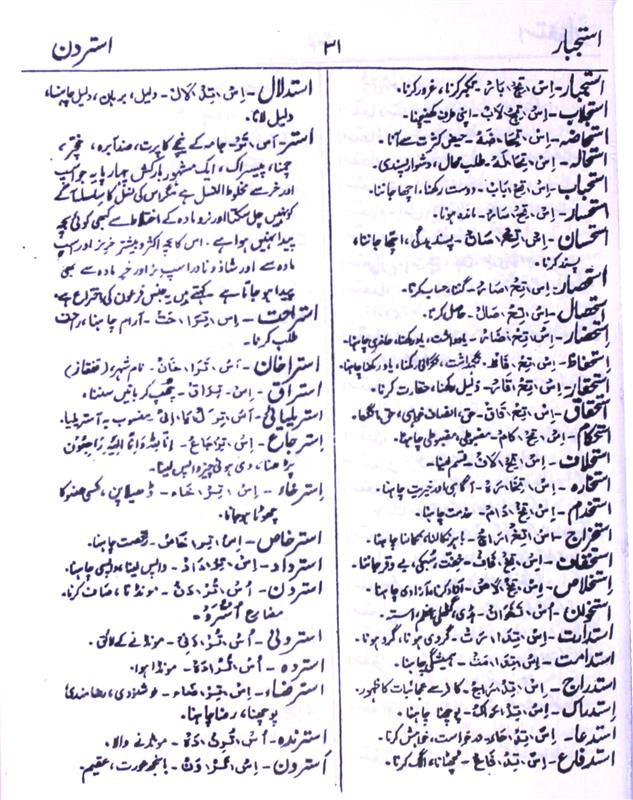 استجبار
۳۱
استردن
استجبار - اِس، تِجْ، بَار - تکبر کرنا، غرور کرنا.
استجلاب - اِس، تِجْ، لَابْ - اپنی طرف کھینچنا.
استحاضہ - اِس، تِحَا، ضَہْ - حیض کثرت سے آنا.
استحالہ - اِس، تِحَا، لَہْ - طلب محال، دشوار پسندی.
استحباب - اِس، تِحْ، بَابْ - دوست رکھنا، اچھا جاننا.
استحسار - اِس، تِحْ، سَارْ - ماندہ ہونا.
استحسان - اِس، تِحْ، سَانْ - پسندیدگی، اچھا جاننا،
پسند کرنا.
استحصار - اِس، تِحْ، صَارْ - گننا، حساب کرنا.
استحصال - اِس، تِحْ، صَالْ - حاصل کرنا.
استحضار - اِس، تِحْ، ضَارْ - یادداشت، یاد رکھنا، حاضری چاہنا.
استحفاظ - اِس، تِحْ، فَاظْ - نگہداشت، نگرانی کرنا، یاد رکھنا چاہنا.
استحقار - اِس، تِحْ، قَارْ - ذلیل سمجھنا، حقارت کرنا.
استحقاق - اِس، تِحْ، قَاقْ - حق، انصاف خواہی، حق مانگنا.
استحکام - اِس، تِحْ، کَامْ - مضبوطی، مضبوطی چاہنا.
استحلاف - اِس، تِحْ، لَافْ - قسم لینا.
استخارہ - اِس، تِخَا، رَہْ - آگاہی اور خیریت چاہنا.
استخدام - اِس، تِخْ، دَامْ - خدمت چاہنا.
استخراج - اِس، تِخْ، رَاجْ - باہر نکالنا، نکالنا چاہنا.
استخفاف - اِس، تِخْ، فَافْ - خفت، سبکی، بے وقر جاننا.
استخلاص - اِس، تِخْ، لَاصْ - آزاد کرنا، آزادی چاہنا.
استخوان - اُس، تُخْوَانْ - ہڈی، گٹھلی، استہ.
استدارت - اِس، تِدَا، رَتْ - گردی ہونا، گرد ہونا.
استدامت - اِس، تِدَا، مَتْ - ہمیشگی چاہنا.
استدراج - اِس، تِدْ، رَاجْ - کافر سے عجائبات کا ظہور.
استدراک - اِس، تِدْ، رَاکْ - پوچھنا چاہنا.
استدعا - اِس، تِدْ، عَا - درخواست، خواہش کرنا.
استدفاع - اِس، تِدْ، فَاعْ - ہٹانا، الگ کرنا.
استدلال - اِس، تِدْ، لَالْ - دلیل، برہان، دلیل چاہنا،
دلیل لانا.
استر - اَس، تَرْ - جامہ کے نیچے کا پرت، ضد ابرہ، خچر،
ایک مشہور بارکش چارپایہ جو اسپ
اور خر سے مخلوط النسل ہے مگر اس کی نسل کا سلسلہ آگے
کو نہیں چل سکتا اور نر و مادہ کے اختلاط سے کبھی کوئی بچہ
پیدا نہیں ہوا ہے. اس کا بچہ اکثر و بیشتر خر نر اور اسپ
مادہ سے اور شاذ و نادر اسپ نر اور خر مادہ سے بھی
پیدا ہو جاتا ہے. کہتے ہیں یہ جنس فرعون کی اختراع ہے.
استراحت - اِس، تِرَا، حَتْ - آرام چاہنا، راحت
طلب کرنا.
استراخان - اَس، تَرَا، خَانْ - نام شہر (قفقاز)
استراق - اِس، تِرَاقْ - چھپ کر باتیں سننا.
استریلیائی - اُس، تِرَ، لْ، یَا، اِئی - منسوب بہ آسٹریلیا.
استرجاع - اِس، تِرْ، جَاعْ - اِنَّا لِلّٰہِ وَاِنَّا اِلَیْہِ رَاجِعُوْن
پڑھنا، دی ہوئی چیز واپس لینا.
استرخاء - اِس، تِرْ، خَاء - ڈھیلا پن، کسی عضو کا
جھوٹا ہو جانا.
استرخاص - اِس، تِرْ، خَاصْ - رخصت چاہنا.
استرداد - اِس، تِرْ، دَادْ - واپس لینا، واپسی چاہنا.
استردن - اُس، تُرْ، دَنْ - مونڈنا، صاف کرنا.
مضارع اُسْتُرَد.
استردنی - اُس، تُرْ، دَنِی - مونڈنے کے لائق.
استردہ - اُس، تُرْ، دَہْ - مونڈا ہوا.
استرضاء - اِس، تِرْ، ضَاء - خوشنودی، رضامندی
پوچھنا، رضا چاہنا.
استرندہ - اُس، تُرَنْ، دَہْ - مونڈنے والا.
استرون - اَس، تَرْ، وَنْ - بانجھ عورت، عقیم.